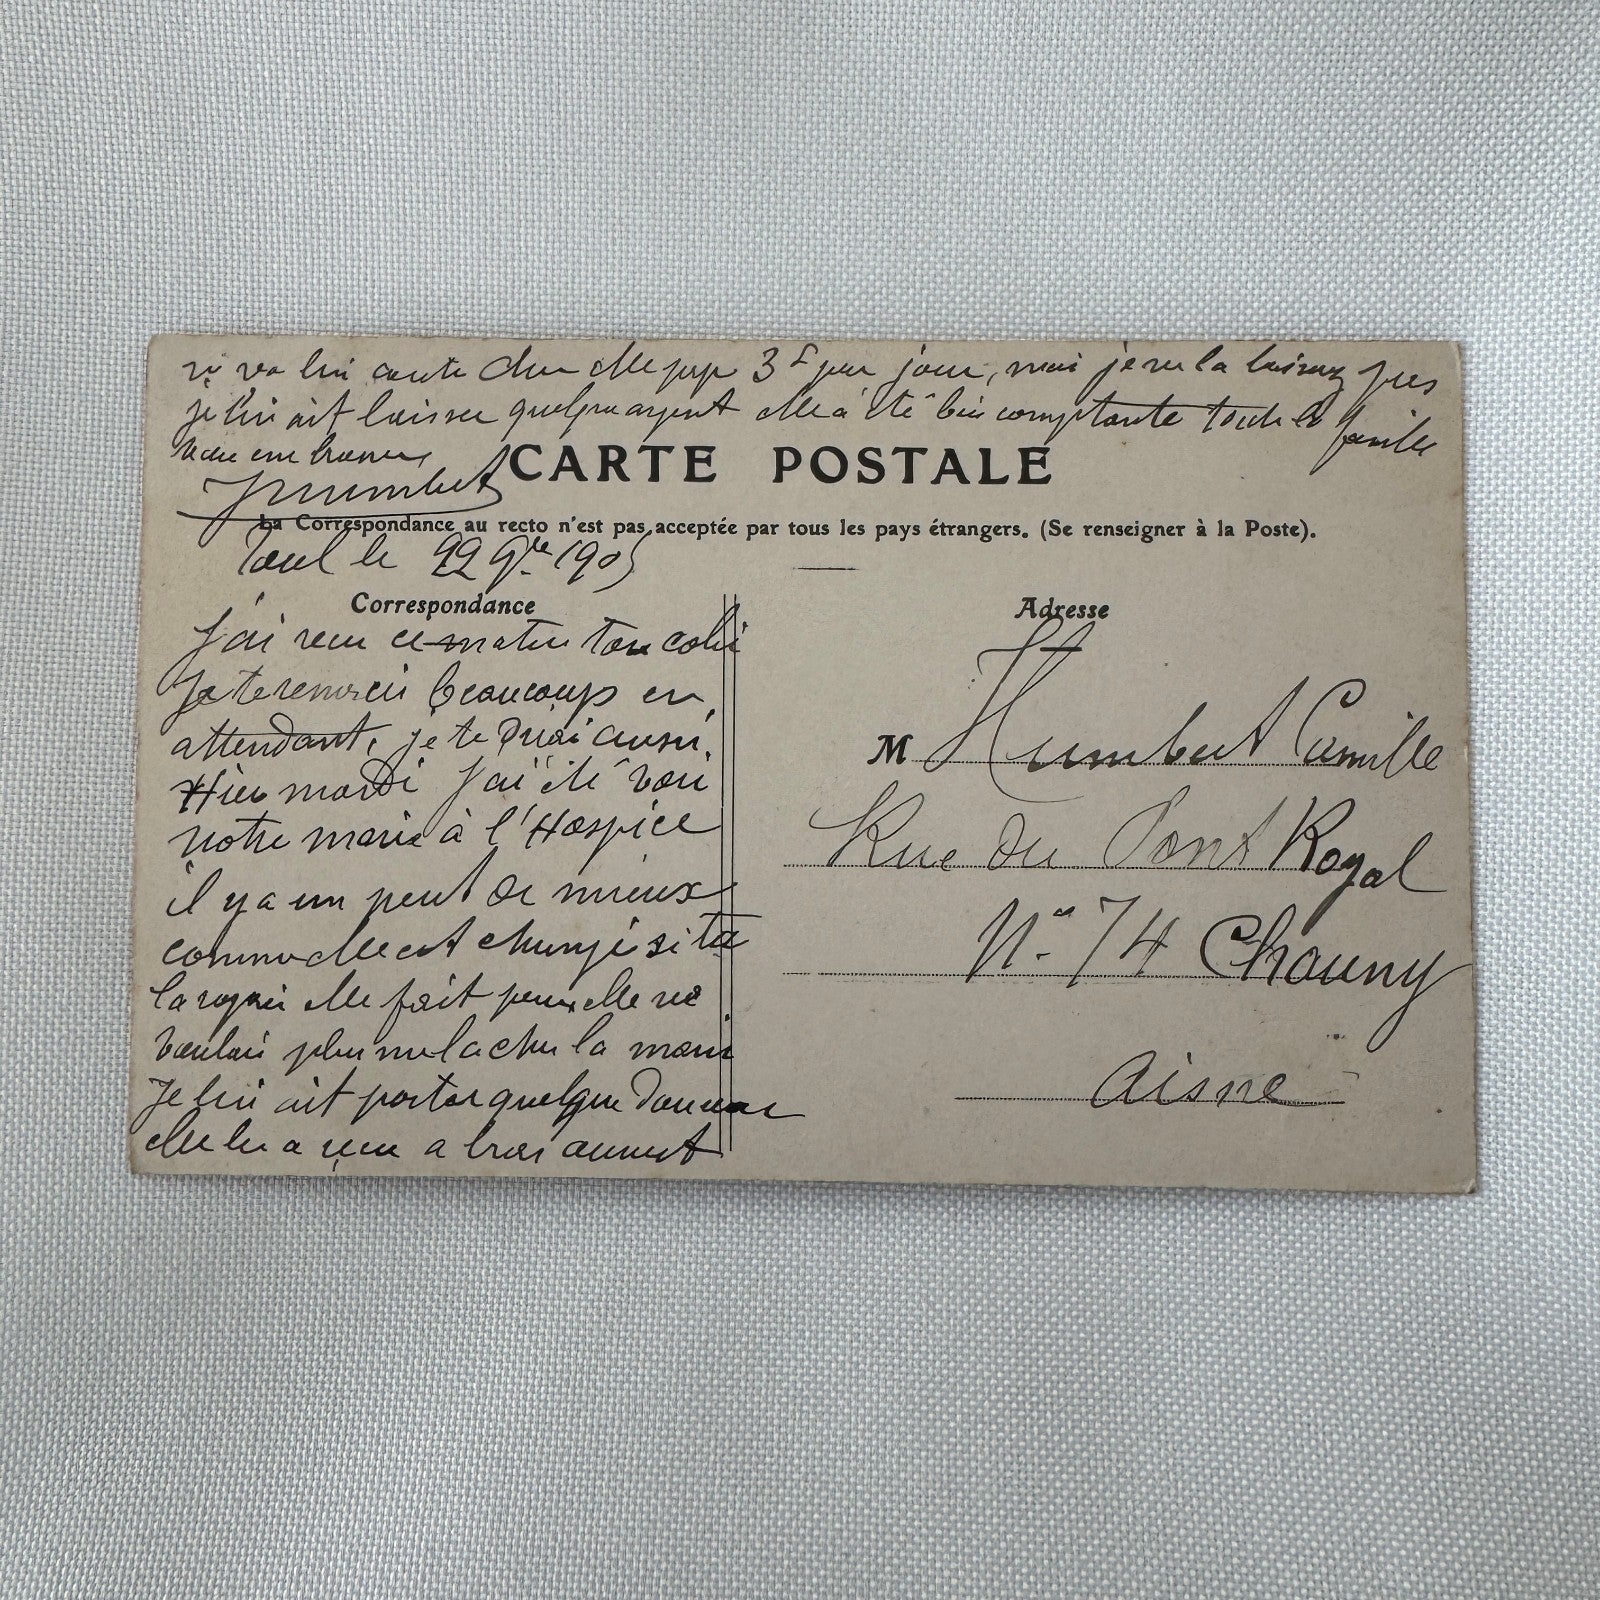 lui coute cher elle paye 3 f par jour, mais je ne la laisserez pas
je lui ait laisser quelque argent elle a été bien comptante toute la famille
vous embrasse
Humbert
CARTE POSTALE
La Correspondance au recto n'est pas acceptée par tous les pays étrangers. (Se renseigner à la Poste).
Toul le 22 9bre 1905
Correspondance
J'ai recu ce matin ton coli
Je te remerci beaucoup en
attendant, je te aussi.
Hier mardi J'ai été voir
notre marie à l'Hospice
il y a un peut de mieux
comme elle est changé si tu
la elle fait peur, elle ne
voulai plus me lacher la main
Je lui ait porter quelque douceur
elle les a recu a bras ouvert
Adresse
M Humbert Camille
Rue du Pont Royal
No 74 Chauny
Aisne